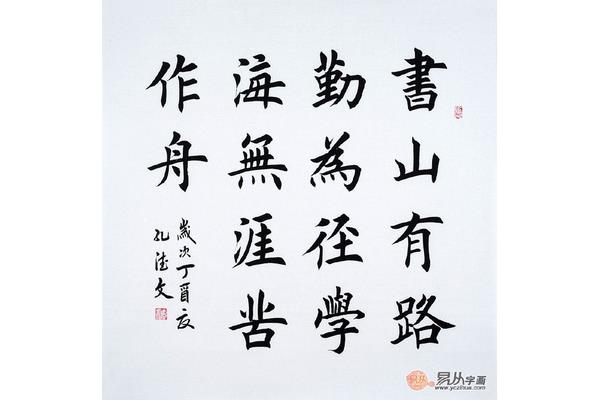 書山有路
勤為径學
海無涯苦
作舟
歲次丁酉夏
孔德文
易从字画
www.yczihua.com